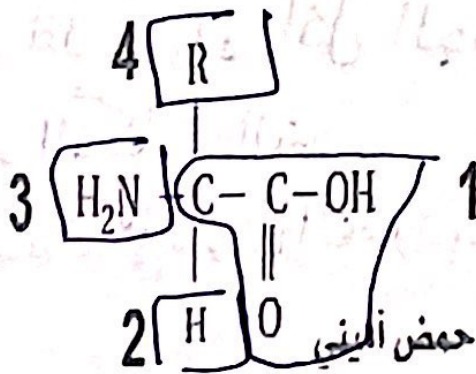 4 R
3 H₂N - C - C - OH 1
2 H O
حمض أميني